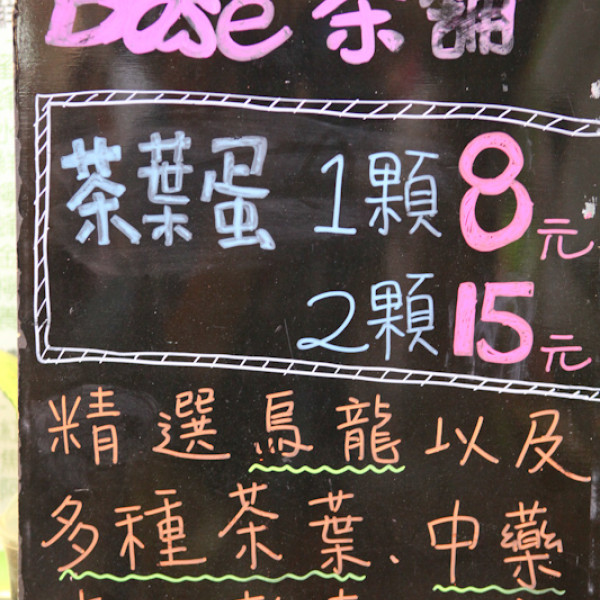 Base 茶舖
茶葉蛋 1顆 8元
2顆 15元
精選烏龍以及
多種茶葉、中藥